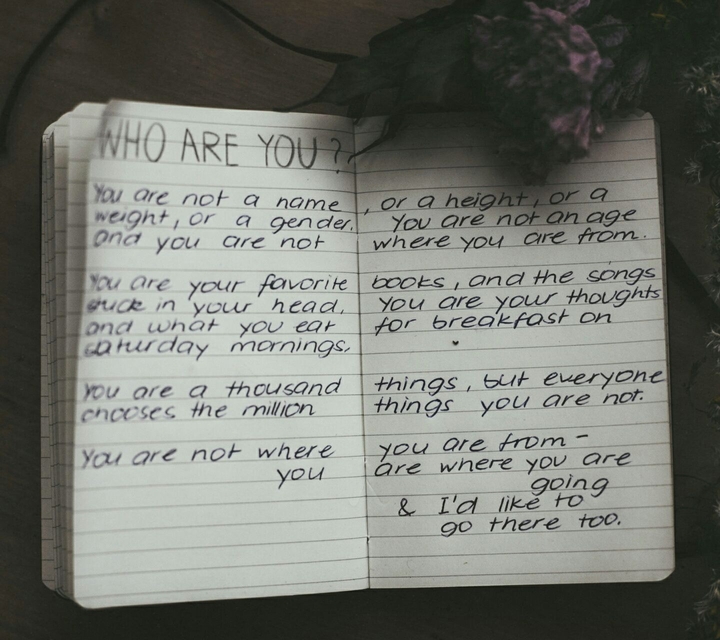 WHO ARE YOU?
You are not a name, or a height, or a
weight, or a gender. You are not an age
and you are not where you are from.
You are your favorite books, and the songs
stuck in your head, you are your thoughts
and what you eat for breakfast on
saturday mornings.
You are a thousand things, but everyone
chooses the million things you are not.
You are not where you are from -
you are where you are
going
& I'd like to
go there too.